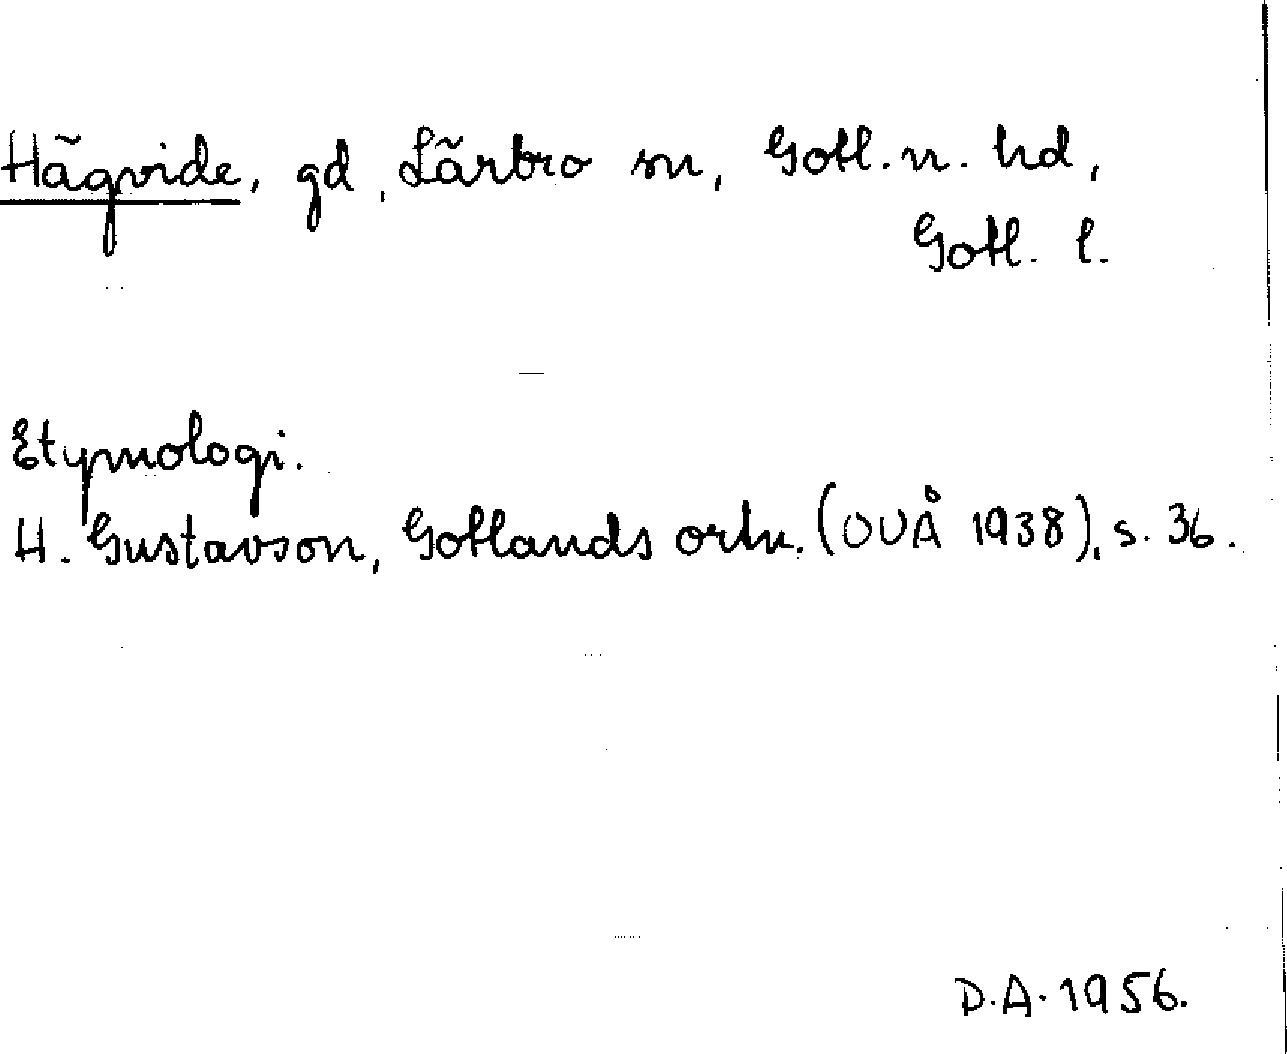 Hägvide, gd, Lärbro sn, Gotl. n. hd,
Gotl. l.
Etymologi.
H. Gustavson, Gotlands ortn. (OUÅ 1938), s. 36.
D.A. 1956.